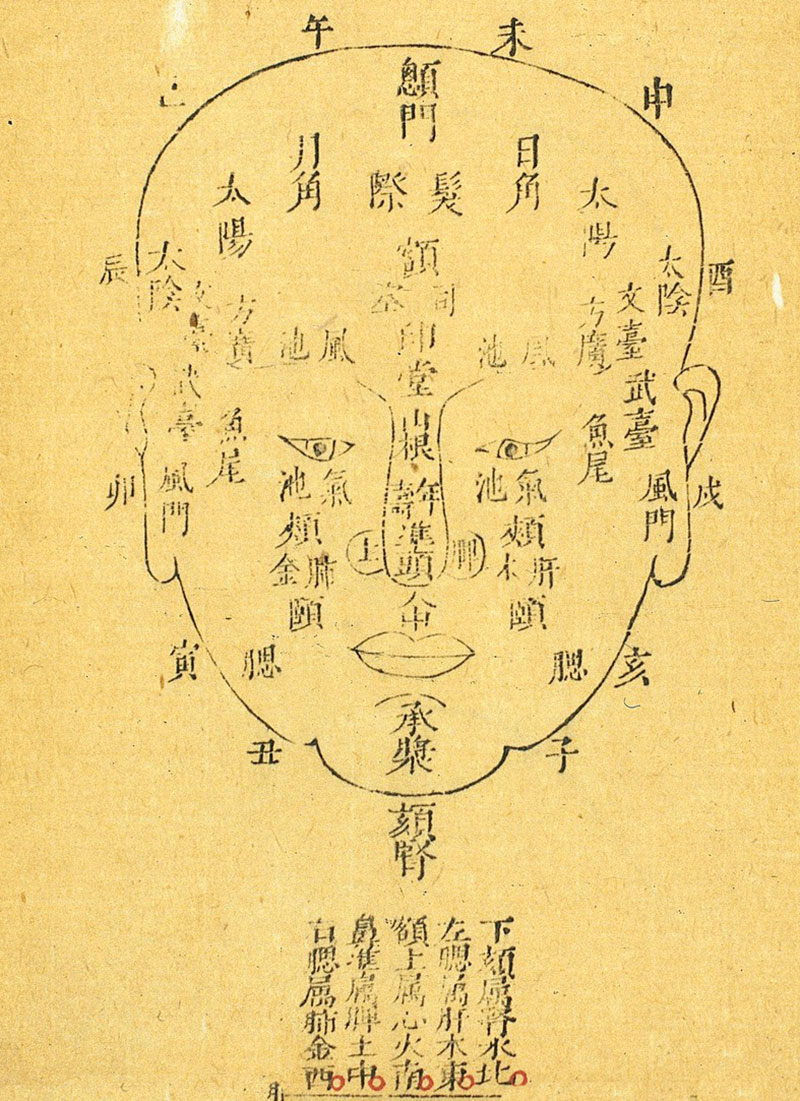 午
未
申
顖門
日角
月角
髮際
太陽
太陽
額
太陰
太陰
辰
酉
文臺
司空
方廣
方廣
印堂
風池
風池
武臺
武臺
山根
魚尾
魚尾
卯
戌
風門
風門
氣池
氣池
年壽
頰
頰
準頭
土
脾
肝木
肺金
人中
頤
頤
寅
腮
腮
亥
承漿
丑
子
頦腎
下頦属腎水北
左腮属肝木東
額上属心火南
鼻準属脾土中
右腮属肺金西